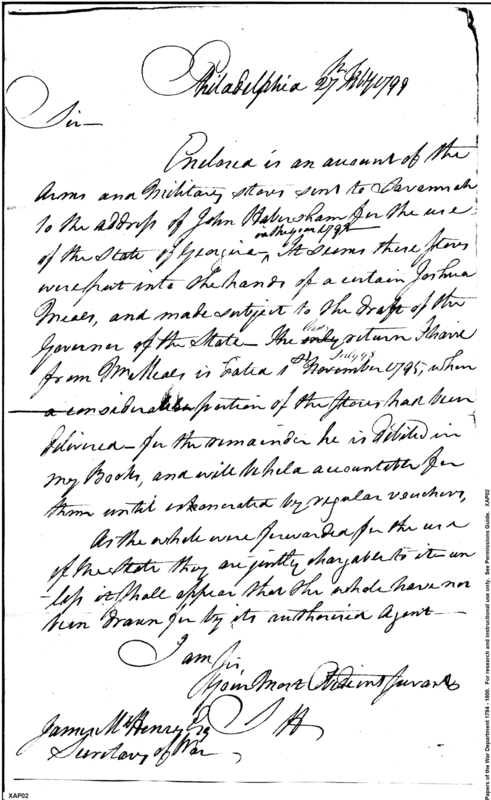 Philadelphia 27th Feby 1799
Sir
Enclosed is an account of the
Arms and Military stores sent to Savannah
to the address of John Habersham for the use
in the year 1794
of the State of Georgia, It seems these stores
were put into the hands of a certain Joshua
Meals, and made subject to the draft of the
Governor of the State The only return I have
from Mr Meals is dated 1st November 1795, when
a considerable portion of the stores had been
delivered for the remainder he is debited in
my Books, and will be held accountable for
them until exonerated by regular vouchers,
As the whole were forwarded for the use
of the State they are justly chargable to it un
less it shall appear that the whole have not
been drawn for by its authorised Agent
I am Sir,
Your Most Obedient Servant
S H
James McHenry Esq
Secretary of War
XAP02
Papers of the War Department 1784 - 1800. For research and instructional use only. See Permissions Guide. XAP02